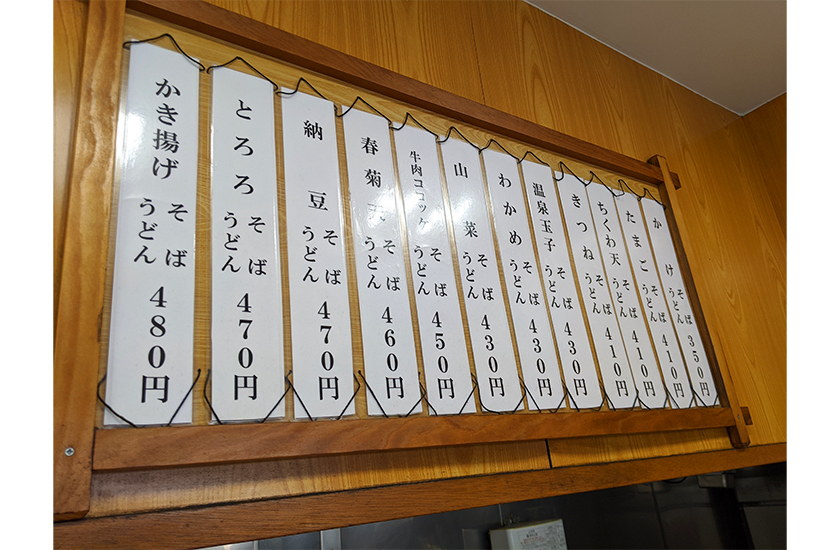 かけ そば うどん 350円
たまご そば うどん 410円
ちくわ天 そば うどん 410円
きつね そば うどん 410円
温泉玉子 そば うどん 430円
わかめ そば うどん 430円
山菜 そば うどん 430円
牛肉コロッケ そば うどん 450円
春菊天 そば うどん 460円
納豆 そば うどん 470円
とろろ そば うどん 470円
かき揚げ そば うどん 480円